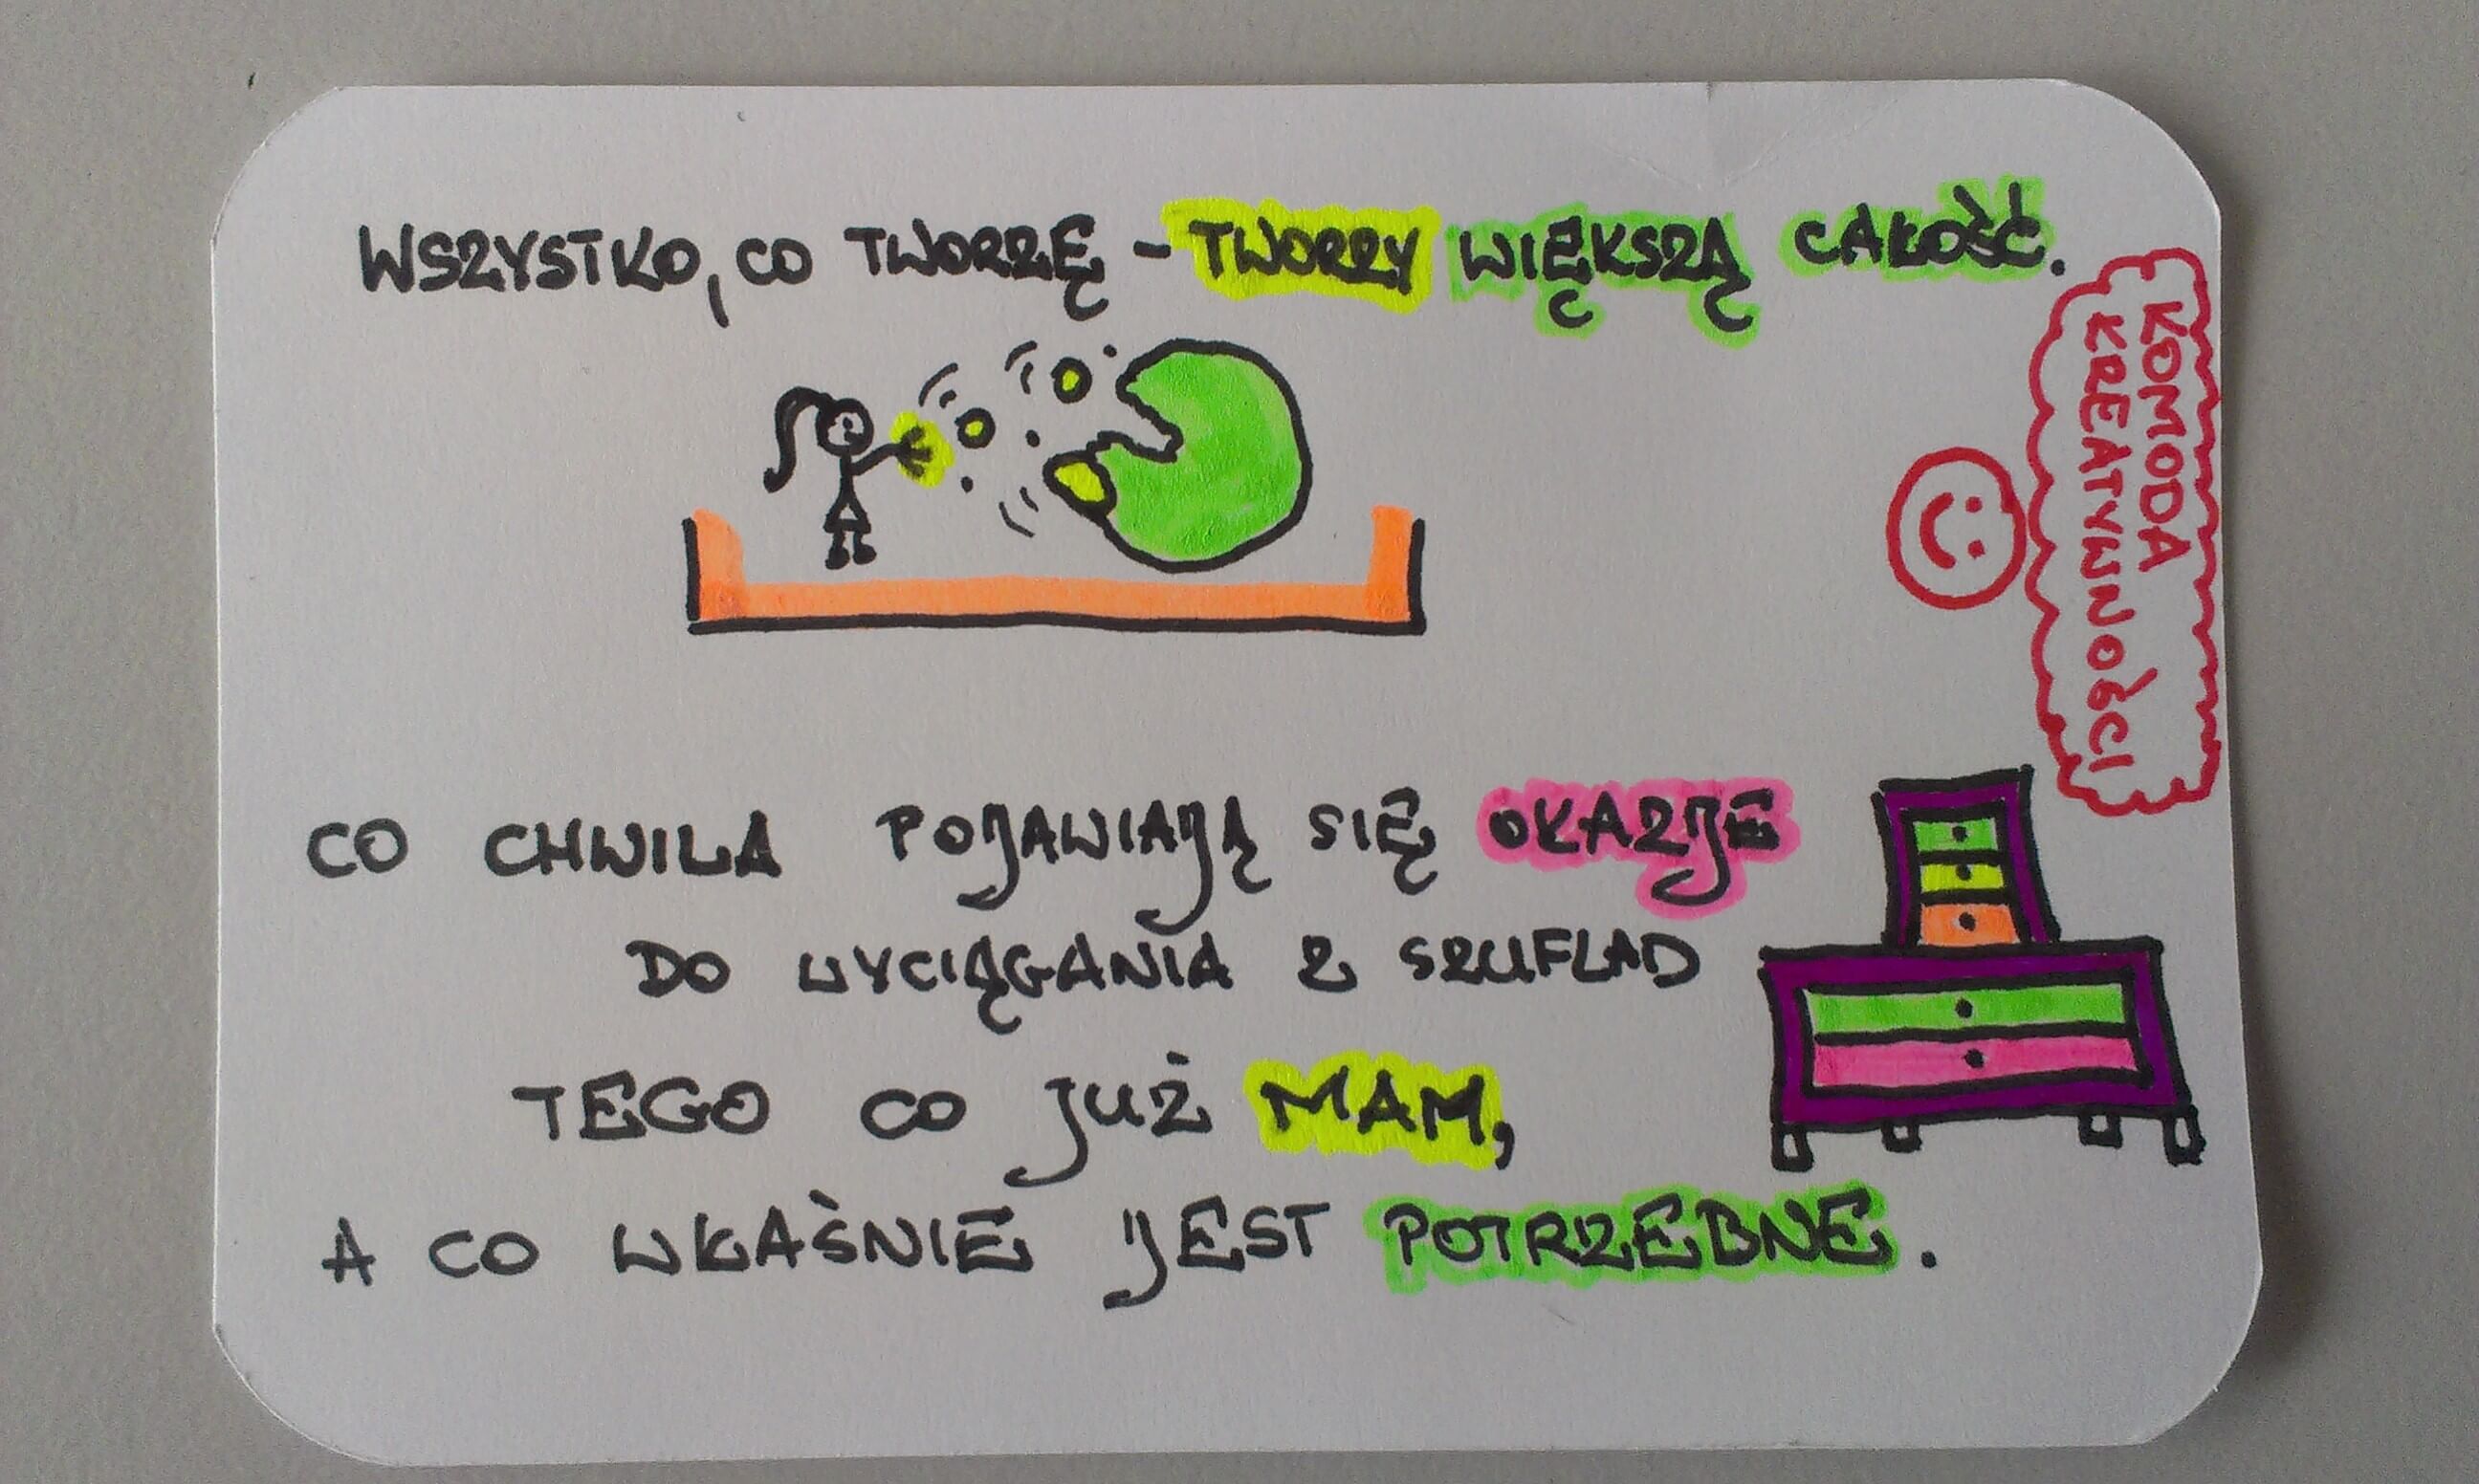 WSZYSTKO, CO TWORZĘ - TWORZY WIĘKSZĄ CAŁOŚĆ.
KOMODA
KREATYWNOŚCI
CO CHWILA POJAWIAJĄ SIĘ OKAZJE
DO WYCIĄGANIA Z SZUFLAD
TEGO CO JUŻ MAM,
A CO WŁAŚNIE JEST POTRZEBNE.